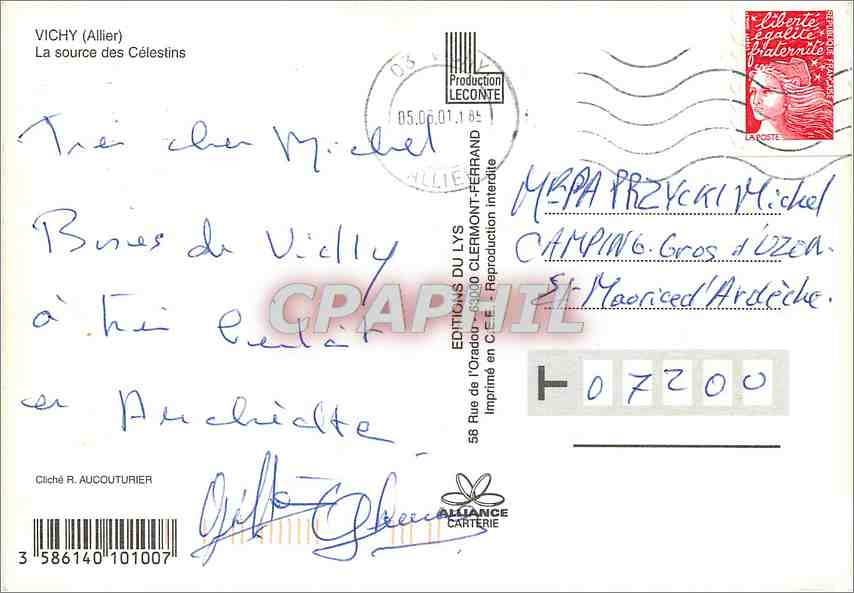 VICHY (Allier)
La source des Célestins
03 VICHY
05.06.01.1
ALLIER
Production
LECONTE
liberté
égalité
fraternité
RÉPUBLIQUE FRANÇAISE
LA POSTE
Très cher Michel
Bises de Vichy
à très bientôt
en
Mr PAPRZYCKI Michel
CAMPING. Gros d'OZER.
St Maoriced'Ardèche.
07200
EDITIONS DU LYS
58 Rue de l'Oradou - 63000 CLERMONT-FERRAND
Imprimé en C.E.E. - Reproduction interdite
CPAPHIL
Cliché R. AUCOUTURIER
3 586140 101007
ALLIANCE
CARTERIE